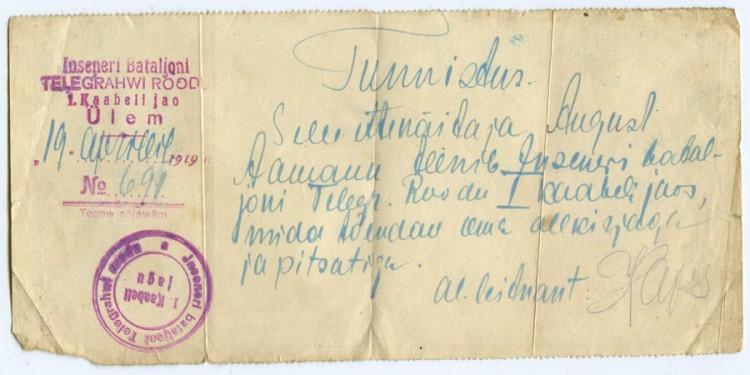 Inseneri Bataljoni
TELEGRAHWI ROODU
1. Kaabeli jao
Ülem
"19. aprillil 1919 a
№ 691
Tegew sõjawäni
Inseneri bataljoni Telegrahwi roodu
1. Kaabeli
jagu
Tunnistus.
Selle ettenäitaja August
Aamann teenib Inseneri batal-
joni Telegr. Roodu I kaabeli jaos,
mida tõendan oma allkirjaga
ja pitsatiga.
al. leitnant: